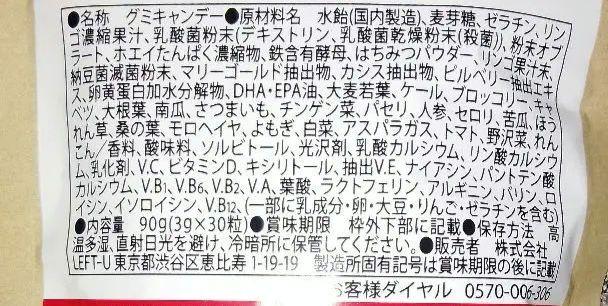 ●名称　グミキャンデー●原材料名　水飴(国内製造)、麦芽糖、ゼラチン、リン
ゴ濃縮果汁、乳酸菌粉末(デキストリン、乳酸菌乾燥粉末(殺菌))、粉末オブ
ラート、ホエイたんぱく濃縮物、鉄含有酵母、はちみつパウダー、リンゴ果汁末、
納豆菌滅菌粉末、マリーゴールド抽出物、カシス抽出物、ビルベリー抽出エキ
ス、卵黄蛋白加水分解物、DHA・EPA油、大麦若葉、ケール、ブロッコリー、キャ
ベツ、大根葉、南瓜、さつまいも、チンゲン菜、パセリ、人参、セロリ、苦瓜、ほう
れん草、桑の葉、モロヘイヤ、よもぎ、白菜、アスパラガス、トマト、野沢菜、れん
こん／香料、酸味料、ソルビトール、光沢剤、乳酸カルシウム、リン酸カルシウ
ム、乳化剤、V.C、ビタミンD、キシリトール、抽出V.E、ナイアシン、パントテン酸
カルシウム、V.B1、V.B6、V.B2、V.A、葉酸、ラクトフェリン、アルギニン、バリン、ロ
イシン、イソロイシン、V.B12、(一部に乳成分・卵・大豆・りんご・ゼラチンを含む)
●内容量　90g(3g×30粒)●賞味期限　枠外下部に記載●保存方法　高
温多湿、直射日光を避け、冷暗所に保管してください。●販売者　株式会社
LEFT-U 東京都渋谷区恵比寿1-19-19　製造所固有記号は賞味期限の後に記載
お客様ダイヤル 0570-006-306